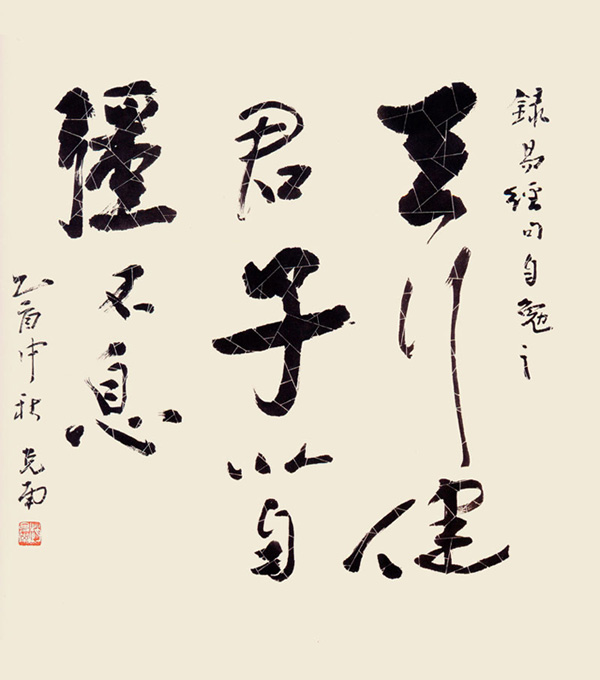 錄易經句自勉之
天行健
君子以自
彊不息
乙酉中秋